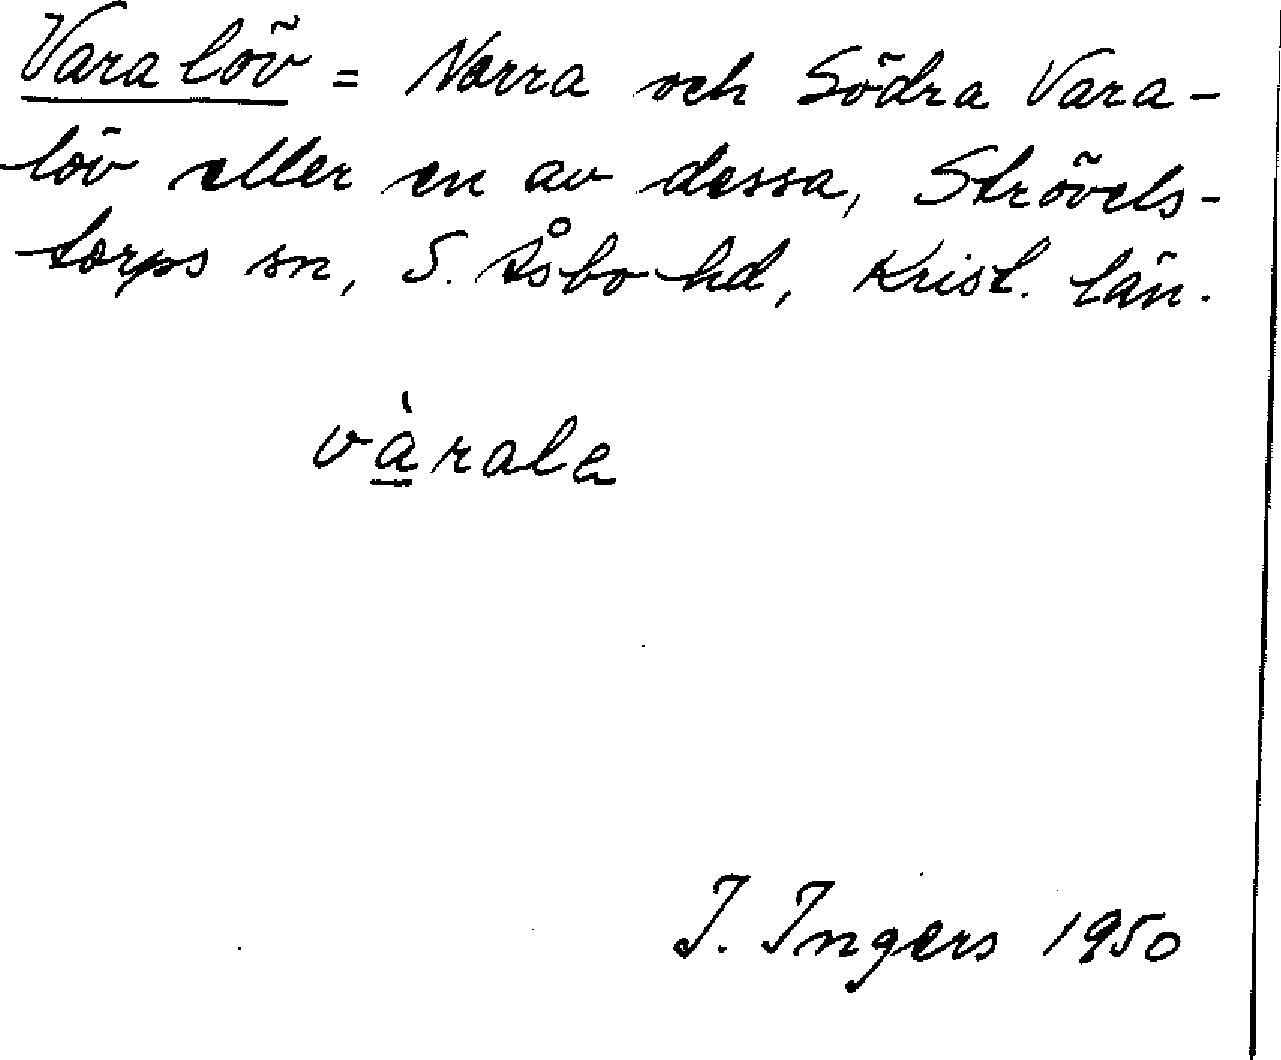 Varalöv = Norra och Södra Vara-
löv eller en av dessa, Strövels-
torps sn, S. Åsbo hd, Krist. län.
và̱rala
I. Ingers 1950